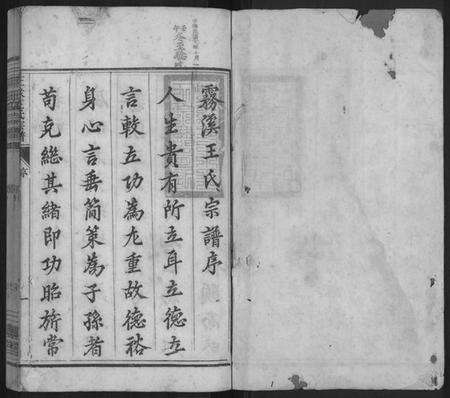 霧溪王氏宗譜序
人生貴有所立耳立德立
言較立功為尤重故德裕
身心言垂簡策為子孫者
苟克繼其緒即功昭旂常
序